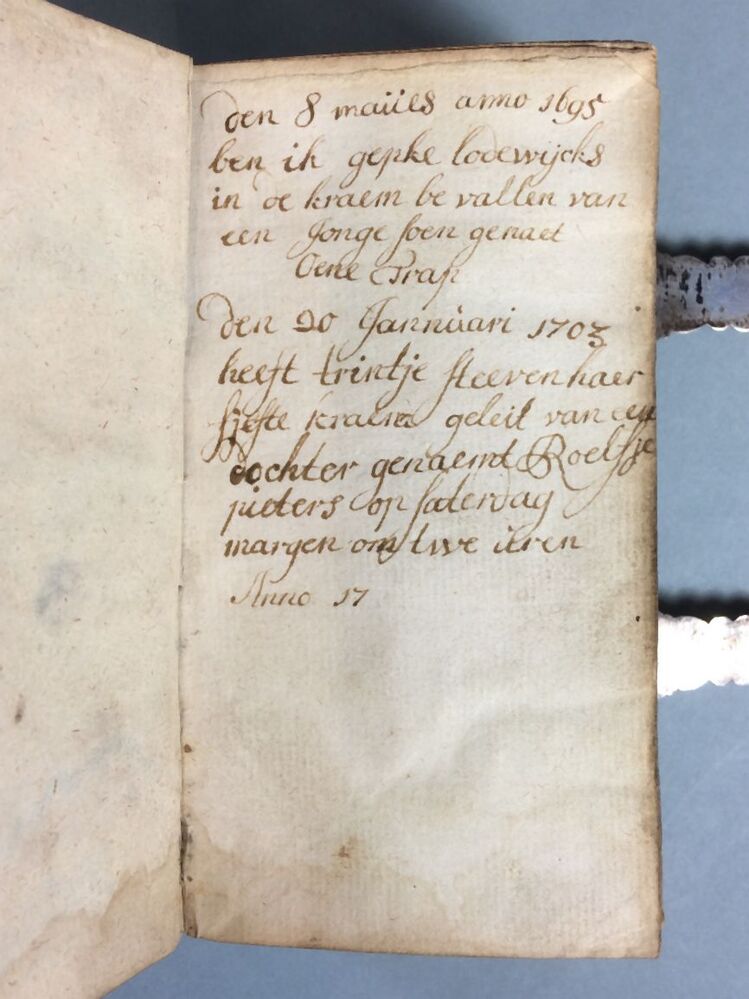 den 8 maües anno 1695
ben ik gepke lodewijcks
in de kraem be vallen van
een Jonge soen genaet
Oene Trap
den 20 Jannüari 1703
heeft trintje steeven haer
seste kraem geleit van een
dochter genaemt Roelsje
pieters op saterdag
margen om twe üeren
Anno 17